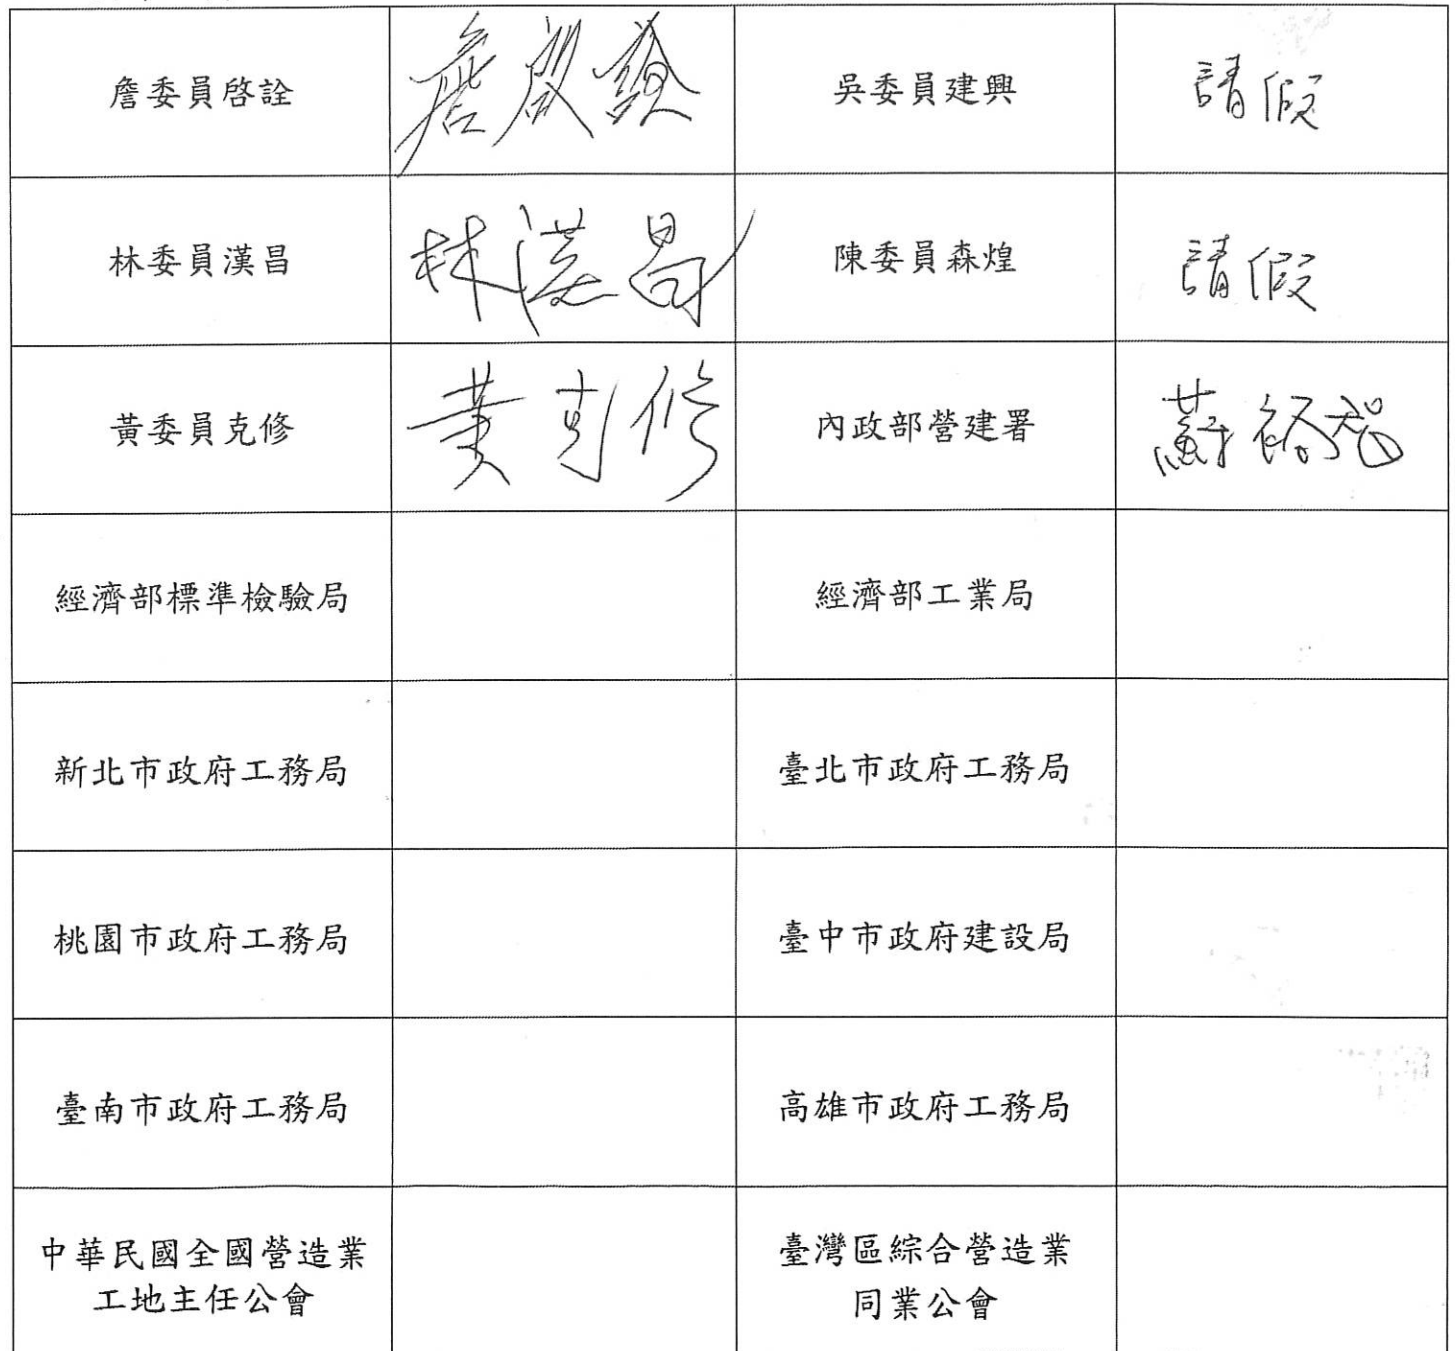 詹委員啓詮 詹啟詮 吳委員建興 請假
林委員漢昌 林漢昌 陳委員森煌 請假
黃委員克修 黃克修 內政部營建署 蘇
經濟部標準檢驗局 經濟部工業局
新北市政府工務局 臺北市政府工務局
桃園市政府工務局 臺中市政府建設局
臺南市政府工務局 高雄市政府工務局
中華民國全國營造業 臺灣區綜合營造業
工地主任公會 同業公會